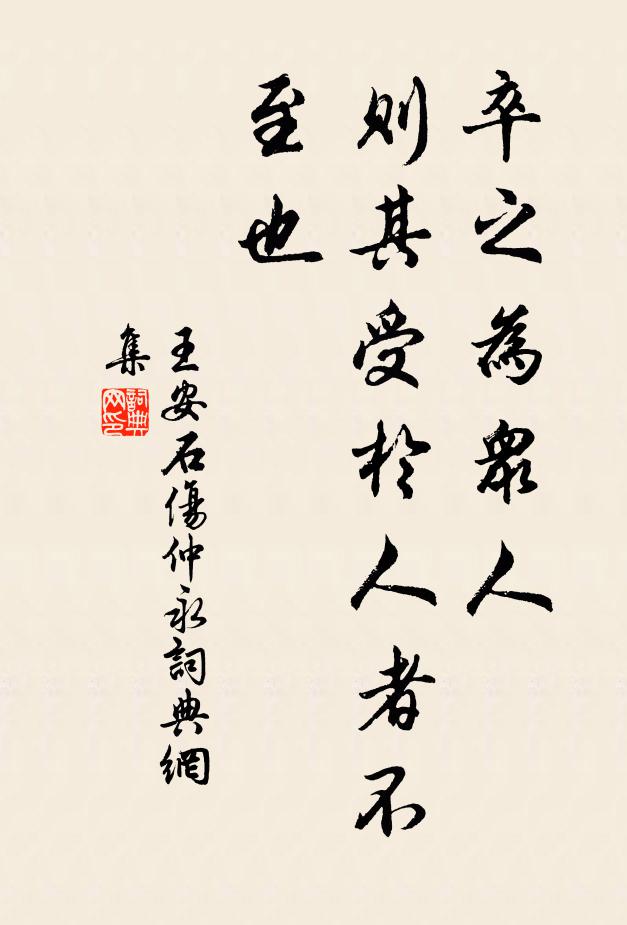 卒之為眾人
則其受於人者不
至也
王安石傷仲永詞典網
集
詞典
网印